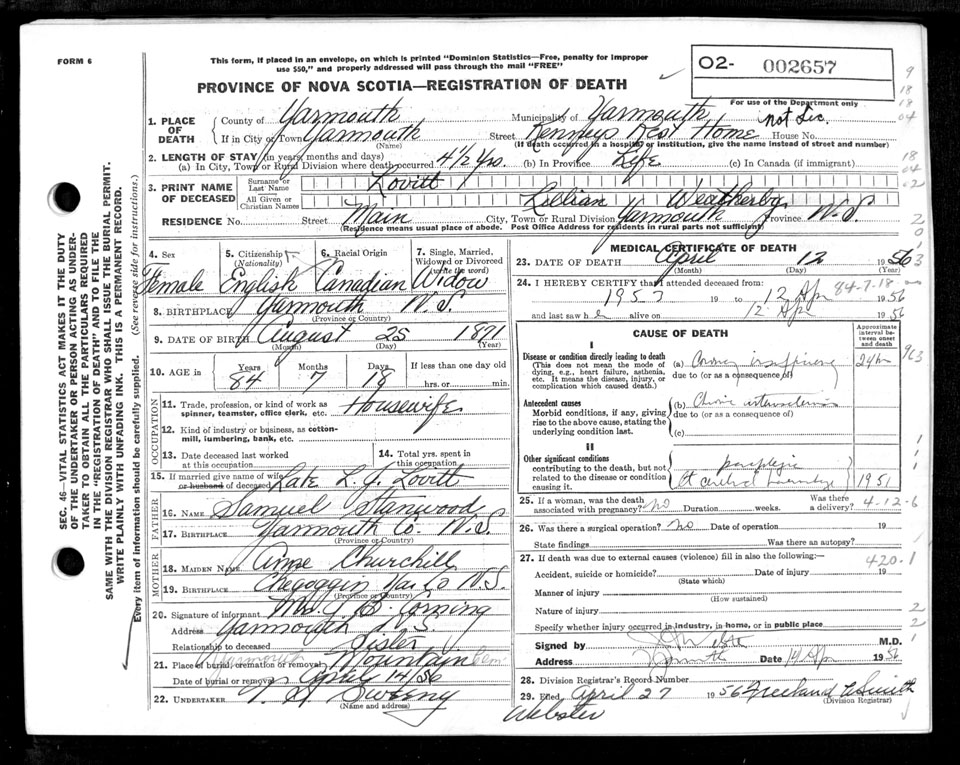 FORM 6
This form, if placed in an envelope, on which is printed "Dominion Statistics—Free, penalty for improper
use $50," and properly addressed will pass through the mail "FREE"
O2- 002657
PROVINCE OF NOVA SCOTIA—REGISTRATION OF DEATH
For use of the Department only
1. PLACE OF DEATH
County of Yarmouth Municipality of Yarmouth
not Inc.
If in City or Town Yarmouth Street Kenneys Rest Home House No.
(Name) (If death occurred in a hospital or institution, give the name instead of street and number)
2. LENGTH OF STAY (in years, months and days)
(a) In City, Town or Rural Division where death occurred 4 1/2 yrs. (b) In Province Life (c) In Canada (if immigrant)
3. PRINT NAME OF DECEASED
Surname or Last Name Lovitt
All Given or Christian Names Lillian Weatherby
RESIDENCE No. Street Main City, Town or Rural Division Yarmouth Province N.S.
(Residence means usual place of abode. Post Office Address for residents in rural parts not sufficient)
4. Sex Female
5. Citizenship (Nationality) English
6. Racial Origin Canadian
7. Single, Married, Widowed or Divorced (write the word) Widow
8. BIRTHPLACE Yarmouth N.S.
(Province or Country)
9. DATE OF BIRTH August 25 1871
(Month) (Day) (Year)
10. AGE in Years Months Days If less than one day old
84 7 18 hrs. or min.
OCCUPATION
11. Trade, profession, or kind of work as spinner, teamster, office clerk, etc. Housewife
12. Kind of industry or business, as cotton-mill, lumbering, bank, etc.
13. Date deceased last worked at this occupation
14. Total yrs. spent in this occupation
15. If married give name of wife or husband of deceased Late L. J. Lovitt
FATHER
16. NAME Samuel Stanwood
17. BIRTHPLACE Yarmouth Co. N.S.
(Province or Country)
MOTHER
18. MAIDEN NAME Churchill
19. BIRTHPLACE Chegoggin Yar Co N.S.
(Province or Country)
20. Signature of informant Mrs. Corning
Address Yarmouth N.S.
Relationship to deceased Sister
21. Place of burial, cremation or removal Yarmouth Mountain Cem
Date of burial or removal April 14/56
22. UNDERTAKER V. S. Sweeny
(Name and address)
MEDICAL CERTIFICATE OF DEATH
23. DATE OF DEATH April 12 1956
(Month) (Day) (Year)
24. I HEREBY CERTIFY that I attended deceased from:
84-7-18
19 to 12 Apr 1956
and last saw h alive on 12 Apl 1956
CAUSE OF DEATH
Approximate interval between onset and death
I
Disease or condition directly leading to death
(This does not mean the mode of dying, e.g., heart failure, asthenia, etc. It means the disease, injury, or complication which caused death.
(a) insufficiency 24 hrs
due to (or as a consequence of)
Antecedent causes
Morbid conditions, if any, giving rise to the above cause, stating the underlying condition last.
(b)
due to (or as a consequence of)
(c)
II
Other significant conditions
contributing to the death, but not related to the disease or condition causing it.
cerebral hemorrhage 1951
25. If a woman, was the death associated with pregnancy? no Duration weeks. Was there a delivery?
4-12-6
26. Was there a surgical operation? no Date of operation 19
State findings Was there an autopsy?
27. If death was due to external causes (violence) fill in also the following:—
420-1
Accident, suicide or homicide? Date of injury 19
(State which)
Manner of injury
(How sustained)
Nature of injury
Specify whether injury occurred in industry, in home, or in public place
Signed by M.D.
Address Yarmouth Date 14 Apr 1956
28. Division Registrar's Record Number
29. Filed April 27 1956 Freeland Smith
(Division Registrar)
Webster
SEC. 46—VITAL STATISTICS ACT MAKES IT THE DUTY
OF THE UNDERTAKER OR PERSON ACTING AS UNDER-
TAKER TO OBTAIN ALL THE PARTICULARS REQUIRED
IN THE "REGISTRATION OF DEATH" AND TO FILE THE
SAME WITH THE DIVISION REGISTRAR WHO SHALL ISSUE THE BURIAL PERMIT.
WRITE PLAINLY WITH UNFADING INK. THIS IS A PERMANENT RECORD.
Every item of information should be carefully supplied. (See reverse side for instructions.)